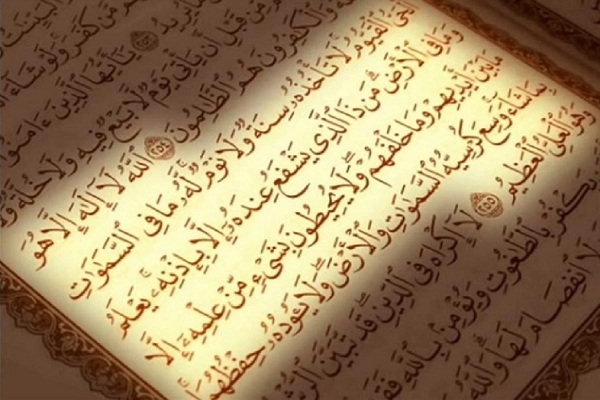 مَّن كَفَرَ وَلَوْ شَآءَ
يَٰٓأَيُّهَا ٱلَّذِينَ ءَامَنُوٓا۟
مِّن قَبْلِ أَن يَأْتِىَ يَوْمٌ لَّا بَيْعٌ فِيهِ وَلَا خُلَّةٌ
وَٱلْكَٰفِرُونَ هُمُ ٱلظَّٰلِمُونَ ٢٥٤ ٱللَّهُ لَآ إِلَٰهَ إِلَّا هُوَ
ٱلْحَىُّ ٱلْقَيُّومُ لَا تَأْخُذُهُۥ سِنَةٌ وَلَا نَوْمٌ لَّهُۥ مَا فِى ٱلسَّمَٰوَٰتِ
وَمَا فِى ٱلْأَرْضِ مَن ذَا ٱلَّذِى يَشْفَعُ عِندَهُۥٓ إِلَّا بِإِذْنِهِۦ يَعْلَمُ
مَا بَيْنَ أَيْدِيهِمْ وَمَا خَلْفَهُمْ وَلَا يُحِيطُونَ بِشَىْءٍ مِّنْ عِلْمِهِۦٓ إِلَّا
بِمَا شَآءَ وَسِعَ كُرْسِيُّهُ ٱلسَّمَٰوَٰتِ وَٱلْأَرْضَ وَلَا يَـُٔودُهُۥ حِفْظُهُمَا
وَهُوَ ٱلْعَلِىُّ ٱلْعَظِيمُ ٢٥٥ لَآ إِكْرَاهَ فِى ٱلدِّينِ قَد تَّبَيَّنَ ٱلرُّشْدُ
يَكْفُرْ بِٱلطَّٰغُوتِ وَيُؤْمِنۢ بِٱللَّهِ فَقَدِ
لَا ٱنفِصَامَ لَهَا وَٱللَّهُ